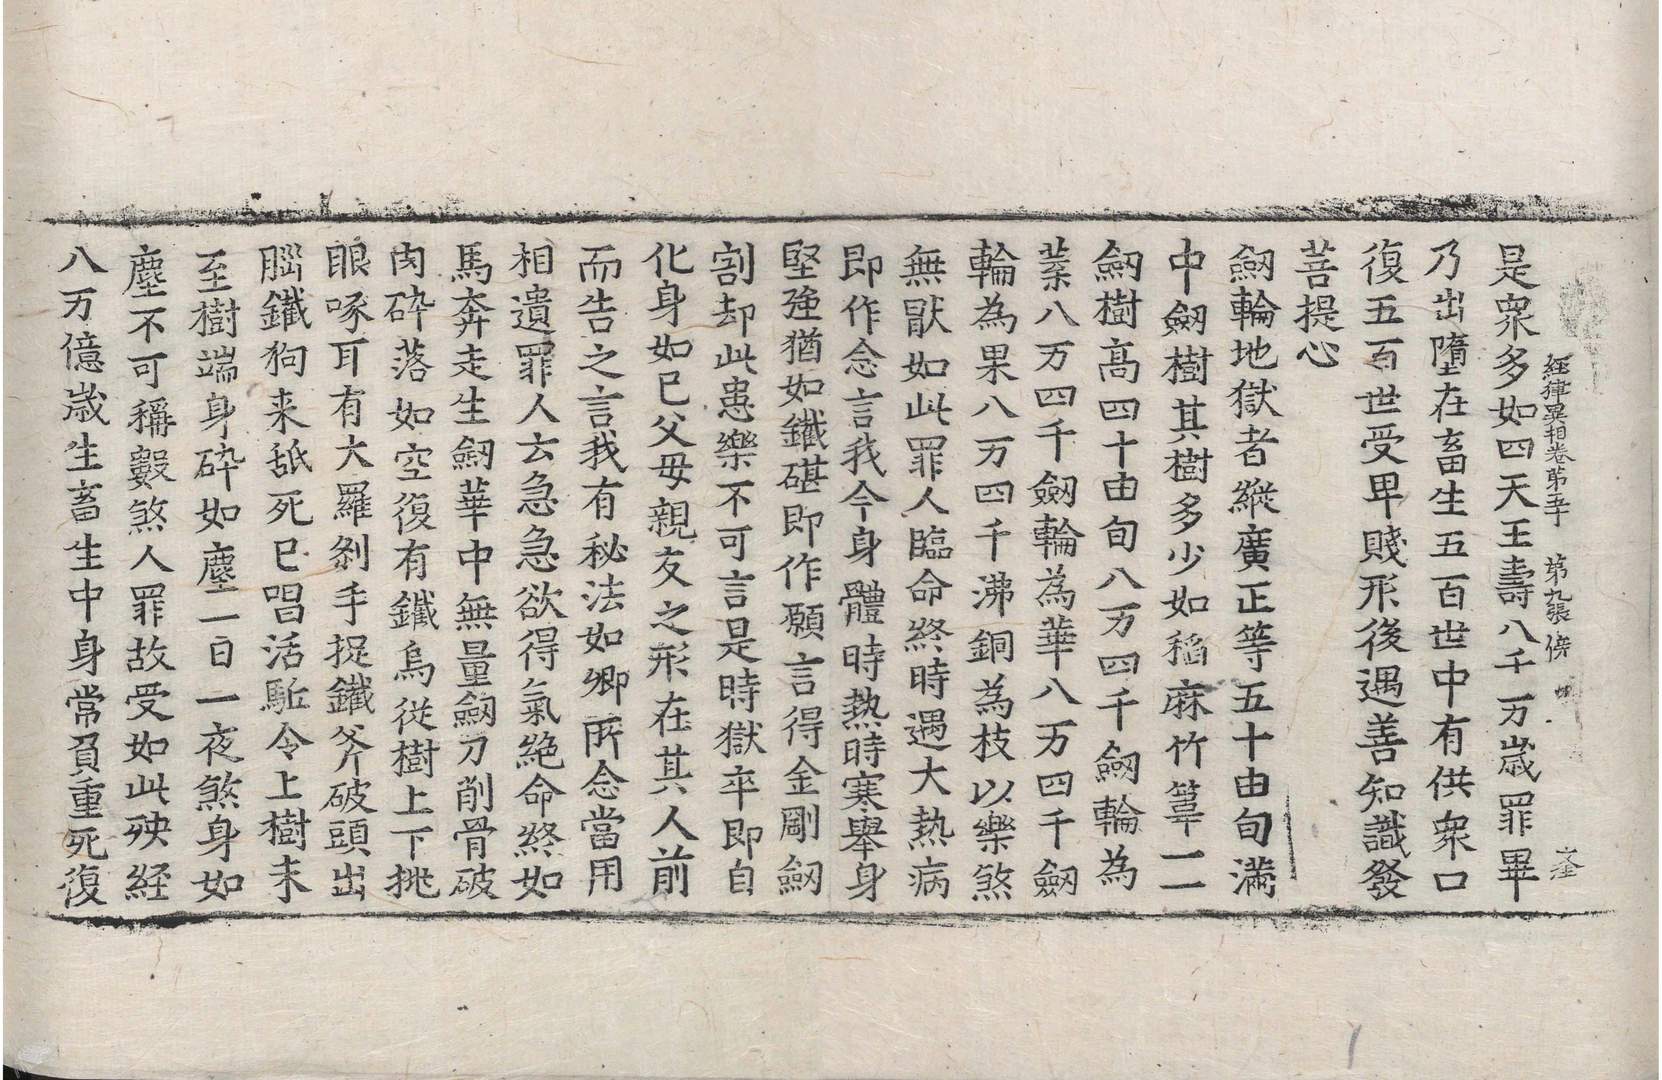 經律異相卷第五十 第九張 傍
是衆多如四天王壽八千万歲罪畢
乃出墮在畜生五百世中有供衆口
復五百世受卑賤形後遇善知識發
菩提心
劒輪地獄者縱廣正等五十由旬滿
中劒樹其樹多少如稻麻竹葦一一
劒樹高四十由旬八万四千劒輪為
葉八万四千劒輪為華八万四千劒
輪為果八万四千沸銅為枝以樂煞
無猒如此罪人臨命終時遇大熱病
即作念言我今身體時熱時寒舉身
堅強猶如鐵碪即作願言得金剛劒
割却此患樂不可言是時獄卒即自
化身如已父母親友之形在其人前
而告之言我有秘法如卿所念當用
相遺罪人去急急欲得氣絶命終如
馬奔走生劒華中無量劒刀削骨破
肉碎落如空復有鐵烏從樹上下挑
眼啄耳有大羅剎手捉鐵斧破頭出
腦鐵狗来舐死已唱活駈令上樹未
至樹端身碎如塵一日一夜煞身如
塵不可稱數煞人罪故受如此殃経
八万億歲生畜生中身常負重死復